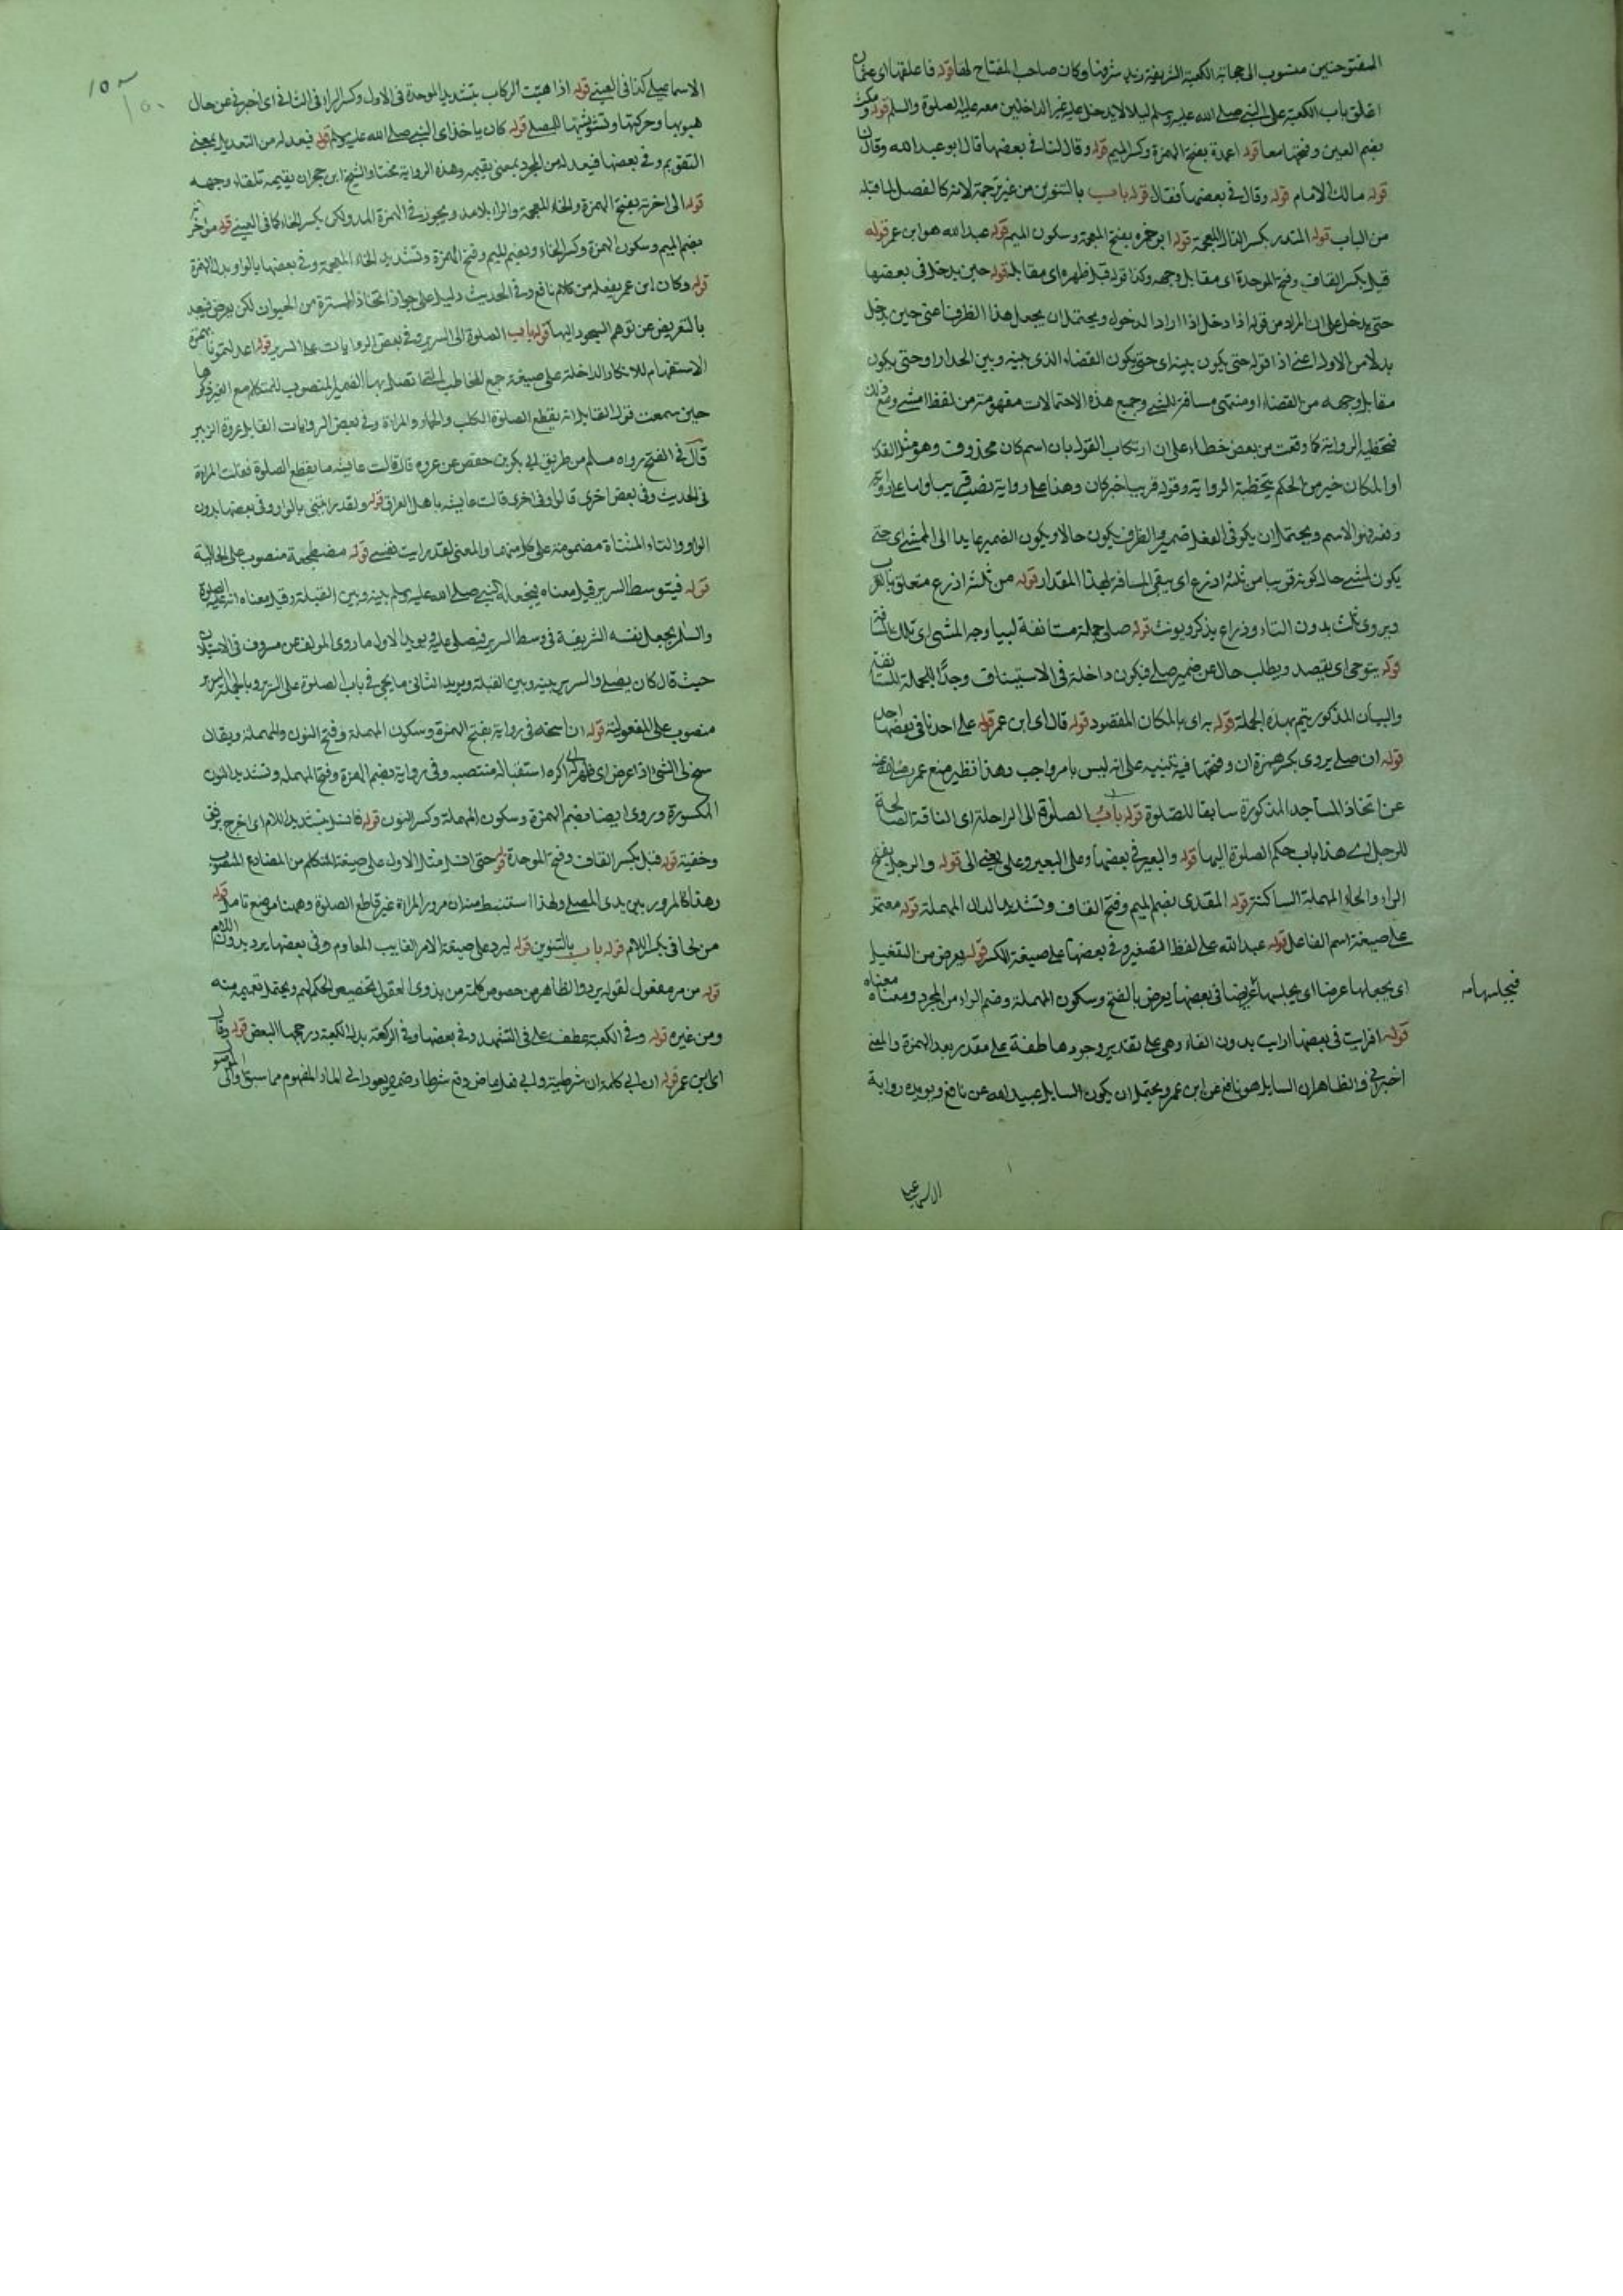 المفتوحتين منسوب الى حجابة الكعبة الشريفة زيد شرفها وكان صاحب المفتاح لها قوله فاغلقها اى عثمان
اغلق باب الكعبة على النبي صلى الله عليه وسلم ليلا لا يدخل عليه غير الداخلين معه عليه الصلوة والسلم قوله ومكث
بضم العين وفتحها معا قوله اعمدة بفتح الهمزة وكسر الميم قوله وقال لنا في بعضها قال ابو عبد الله وقال
قوله مالك الامام قوله وقال في بعضها فقال قوله باب بالتنوين من غير ترجمة لانه كالفصل لما قبله
من الباب قوله المنذر بكسر الذال المعجمة قوله ابو ضمرة بفتح المعجمة وسكون الميم قوله عبد الله هو ابن عمر قوله
قبل بكسر القاف وفتح الموحدة اى مقابل وجهه وكذا قوله قبل ظهره اى مقابله قوله حين يدخل في بعضها
حتى يدخل على ان المراد من قوله اذا دخل اذا اراد الدخول ويحتمل ان يجعل هذا الظرف اعنى حين يدخل
بدلا من الاول اعنى اذا قوله حتى يكون بينه اى حتى يكون الفضاء الذى بينه وبين الجدار او حتى يكون
مقابل وجهه من الفضاء او منتهى مسافة المشي وجميع هذه الاحتمالات مفهومة من لفظ امشي ومع ذلك
فتخطئة الرواية كما وقعت من بعض خطاء على ان ارتكاب القول بان اسم كان محذوف وهو مثل القدر
او المكان خير من الحكم بتخطئة الرواية وقوله قريبا خبر كان وهذا على رواية نصب قريبا واما على رواية
رفعه فهو الاسم ويحتمل ان يكون في الفعل ضمير والظرف يكون حالا ويكون الضمير عايدا الى المشي اى حتى
يكون المشي حال كونه قريبا من ثلثة اذرع اى يبقى المسافة لهذا المقدار قوله من ثلثة اذرع متعلق بالقرب
ويروى ثلث بدون التاء وذراع يذكر ويونث قوله صلى جملة مستانفة لبيان وجه المشي اى تلك المسافة
قوله يتوخى اى يقصد ويطلب حال عن ضمير صلى فيكون داخلة في الاستيناف وجدًا للجملة المستانفة
والبيان المذكور يتم بهذه الجملة قوله به اى بالمكان المقصود قوله قال اى ابن عمر قوله على احدنا في بعضها احد
قوله ان صلى يروى بكسر همزة ان وفتحها فيه تنبيه على انه ليس بامر واجب وهذا نظير منع عمر رضى الله عنه
عن اتخاذ المساجد المذكورة سابقا للصلوة قوله باب الصلوة الى الراحلة اى الناقة الصالحة
للرحل اى هذا باب حكم الصلوة اليها قوله والبعير في بعضها وعلى البعير وعلى بمعنى الى قوله والرحل بفتح
الراء والحاء المهملة الساكنة قوله المقدمى بضم الميم وفتح القاف وتشديد الدال المهملة قوله معتمر
على صيغة اسم الفاعل قوله عبد الله على لفظ المصغر وفي بعضها على صيغة المكبر قوله يعرض من التفعيل
اى يجعلها عرضا اى يجلسها عريضا في بعضها يعرض بالفتح وسكون المهملة وضم الراء من المجرد ومعناه معناه
فيجلسها مه
قوله افرايت في بعضها ارايت بدون الفاء وهى على تقدير وجودها عاطفة على مقدر بعد الهمزة والمعنى
اخبرنى والظاهر ان السايل هو نافع عن ابن عمر ويحتمل ان يكون السايل عبيد الله عن نافع ويويده رواية
الاسماعيلى
الاسماعيلى كذا فى العينى قوله اذا هبت الركاب بتشديد الموحدة فى الاول وكسر الراء فى الثانى اى اخبرنى عن حال
هبوبها وحركتها وتشويشها للمصلى قوله كان ياخذ اى النبي صلى الله عليه وسلم قوله فيعدله من التعديل بمعنى
التقويم وفي بعضها فيعدله من المجرد بمعنى يقيمه وهذه الرواية مختار الشيخ ابن حجر ان يقيمه تلقاء وجهه
قوله الى اخرته بفتح الهمزة والخاء المعجمة والراء بلا مد ويجوز في الهمزة المد ولكن بكسر الخاء كما فى العينى قوله مؤخره
بضم الميم وسكون الهمزة وكسر الخاء وبضم الميم وفتح الهمزة وتشديد الخاء المعجمة وفي بعضها بالواو بدل الهمزة
قوله وكان ابن عمر يفعله من كلام نافع وفي الحديث دليل على جواز اتخاذ السترة من الحيوان لكن يعرض فيبعد
بالتعريض عن توهم السجود اليها قوله باب الصلوة الى السرير وفي بعض الروايات على السرير قوله اعدلتمونا بهمزة
الاستفهام للانكار الداخلة على صيغة جمع المخاطب التى اتصل بها الضمير المنصوب للمتكلم مع الغير قوله
حين سمعت قول القايل انه يقطع الصلوة الكلب والحمار والمراة وفي بعض الروايات القايل عروة الزبير
قال في الفتح رواه مسلم من طريق ابى بكر بن حفص عن عروة قال قالت عايشة ما يقطع الصلوة فقلت المراة
فى الحديث وفى بعض اخرى قالوا وفى اخرى قالت عايشة يا اهل العراق قوله ولقد رايتنى بالواو وفى بعضها بدون
الواو والتاء المثناة مضمومة على كل منهما والمعنى لقد رايت نفسى قوله مضطجعة منصوب على الحالية
قوله فيتوسط السرير قيل معناه فيجعله النبى صلى الله عليه وسلم بينه وبين القبلة وقيل معناه انه عليه الصلوة
والسلم يجعل نفسه الشريفة فى وسط السرير فيصلى عليه ويويد الاول ما روى المولف عن مسروق فى الاستيذان
حيث قال كان يصلى والسرير بينه وبين القبلة ويويد الثانى ما يجئ في باب الصلوة على السرير وبالجملة السرير
منصوب على المفعولية قوله ان اسنحه فى رواية بفتح الهمزة وسكون المهملة وفتح النون والمهملة ويقال
سنح لى الشئ اذا عرض اى ظهر له اكره استقباله منتصبه وفى رواية بضم الهمزة وفتح المهملة وتشديد النون
المكسورة وروى ايضا بضم الهمزة وسكون المهملة وكسر النون قوله فانسل بتشديد اللام اى اخرج برفق
وخفية قوله قبل بكسر القاف وفتح الموحدة قوله حتى انسل مثل الاول على صيغة المتكلم من المضارع المنصوب
وهذا كالمرور بين يدى المصلى ولهذا استنبط منه ان مرور المراة غير قاطع الصلوة وههنا موضع تامل قوله
من لحافى بكسر اللام قوله باب بالتنوين قوله ليرد على صيغة الامر الغايب المعلوم وفى بعضها يرد بدون اللام
قوله من مر مفعول لقوله يرد والظاهر من خصوص كلمة من بذوى العقول تخصيص الحكم بهم ويحتمل تعميمه منه
ومن غيره قوله وفي الكعبة عطف على فى التشهد وفي بعضها وفي الركعة بدل الكعبة ورجحها البعض قوله وقال
اى ابن عمر قوله ان ابى كلمة ان شرطية وابى فعل ماض وقع شرطا وضميره يعود الى المار المفهوم مما سبق